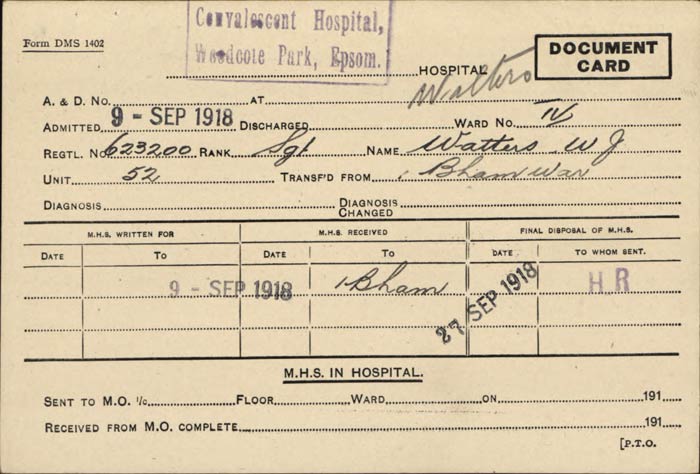 Convalescent Hospital,
Woodcote Park, Epsom.
Form DMS 1402
HOSPITAL
Walters
DOCUMENT
CARD
A. & D. No. AT
ADMITTED 9 - SEP 1918 DISCHARGED WARD No. IV
REGTL. No. 623200 RANK Sgt NAME Watters W J
UNIT 52 TRANSF'D FROM 1 Bham War
DIAGNOSIS DIAGNOSIS
CHANGED
M.H.S. WRITTEN FOR M.H.S. RECEIVED FINAL DISPOSAL OF M.H.S.
DATE TO DATE TO DATE TO WHOM SENT.
9 - SEP 1918 1 Bham 27 SEP 1918 H R
M.H.S. IN HOSPITAL.
SENT TO M.O. I/c FLOOR WARD ON 191
RECEIVED FROM M.O. COMPLETE 191
[P.T.O.